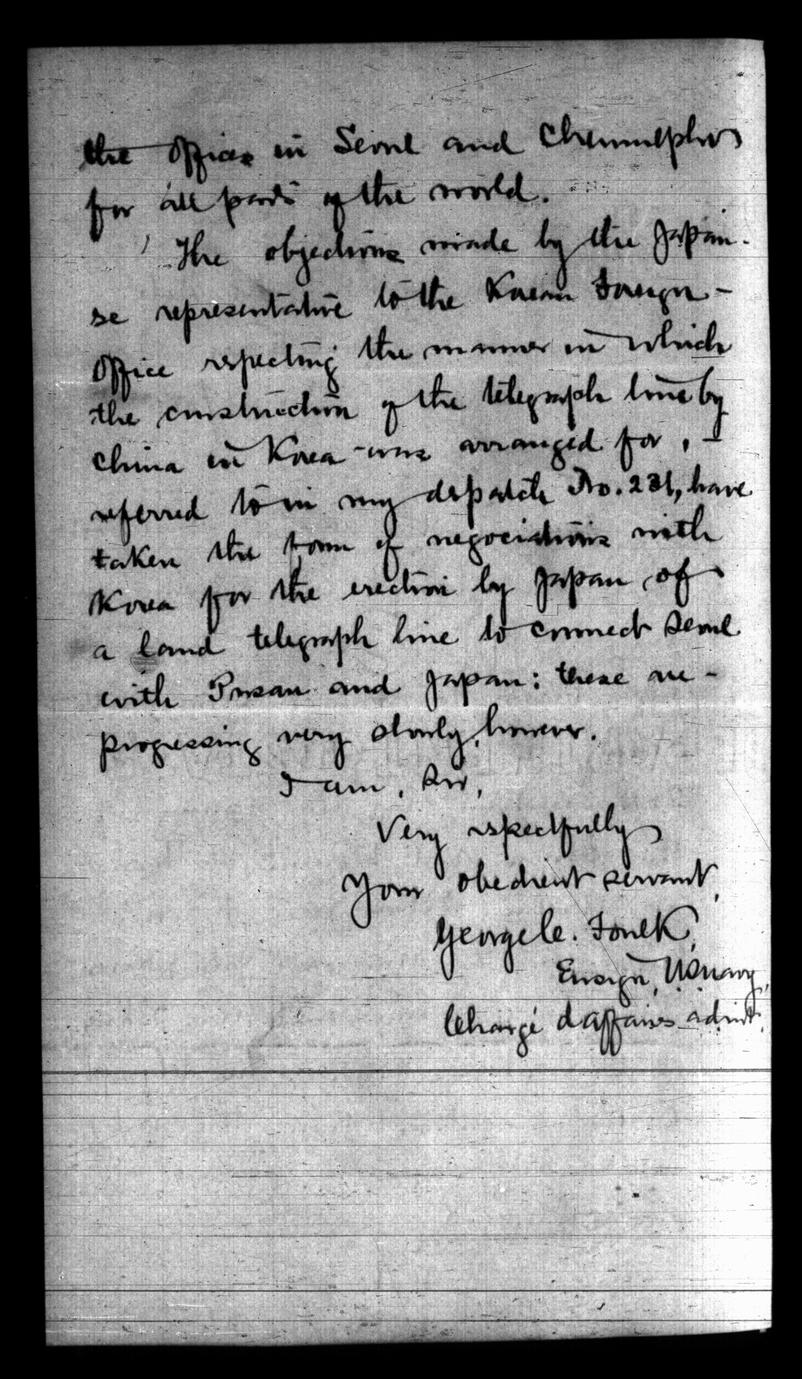 the offices in Seoul and Chemulpho
for all parts of the world.
The objections made by the Japan-
se representative to the Korean Foreign-
Office respecting the manner in which
the construction of the telegraph line by
China in Korea was arranged for, -
referred to in my dispatch No. 231, have
taken the form of negociations with
Korea for the erection by Japan of
a land telegraph line to connect Seoul
with Pusan and Japan: these are -
progressing very slowly, however.
I am, Sir,
Very respectfully
Your obedient servant,
George C. Foulk,
Ensign, U.S. Navy,
Chargé d'affaires ad. int.